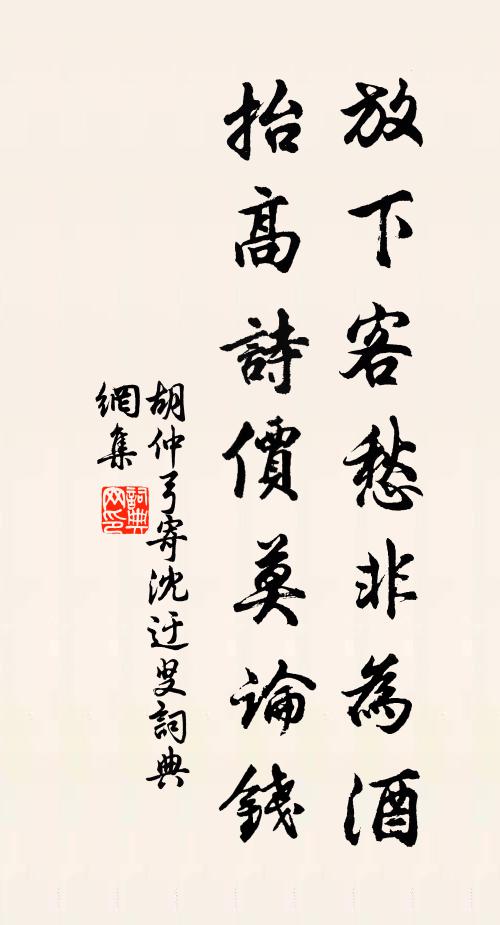 放下客愁非為酒
抬高詩價莫論錢
胡仲弓寄沈迂叟詞典
網集
詞典
网印